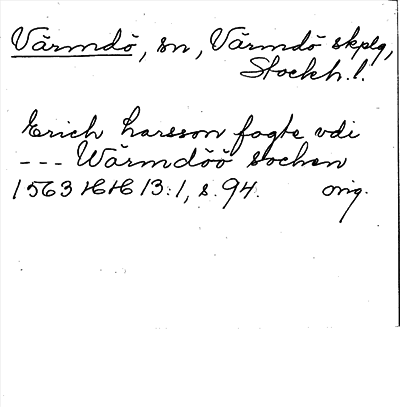 Värmdö, sn, Värmdö skplg,
Stockh. l.
Erich Larsson fogte vdi
--- Wärmdöö sochen
1563 HH 13:1, s. 94. orig.